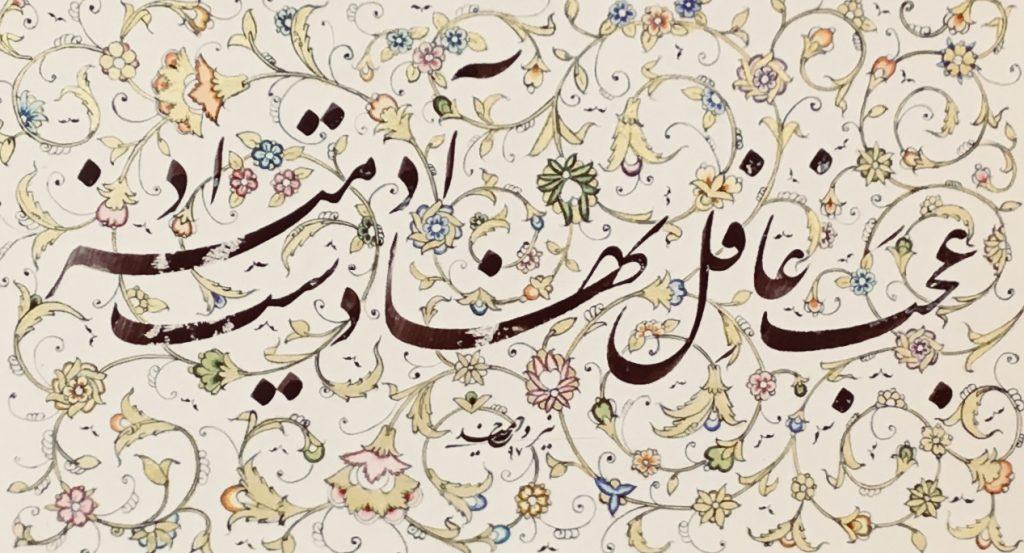 عجب غافل نهادیست آدمیزاد